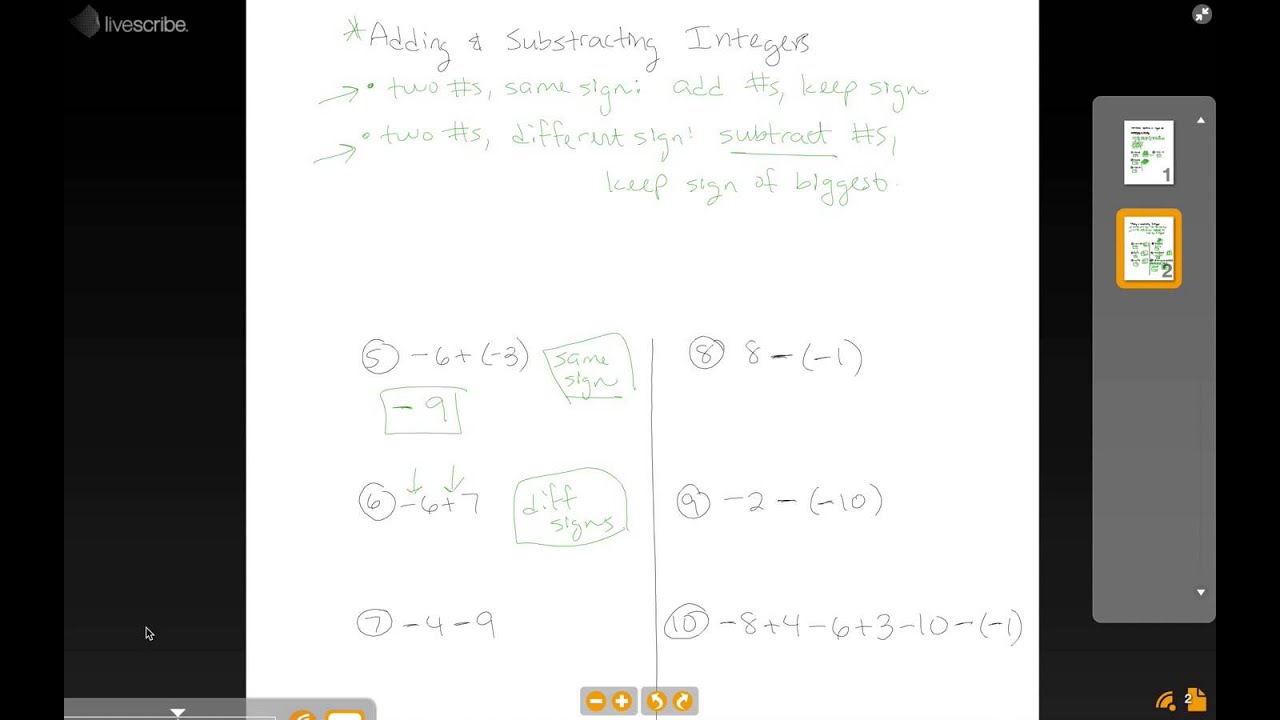 livescribe.
*Adding & Substracting Integers
• two #s, same sign: add #s, keep sign
• two #s, different sign: subtract #s,
keep sign of biggest.
5 -6+(-3)
same
sign
-9
6 -6+7
diff
signs
7 -4-9
8 8-(-1)
9 -2-(-10)
10 -8+4-6+3-10-(-1)
1
2
2